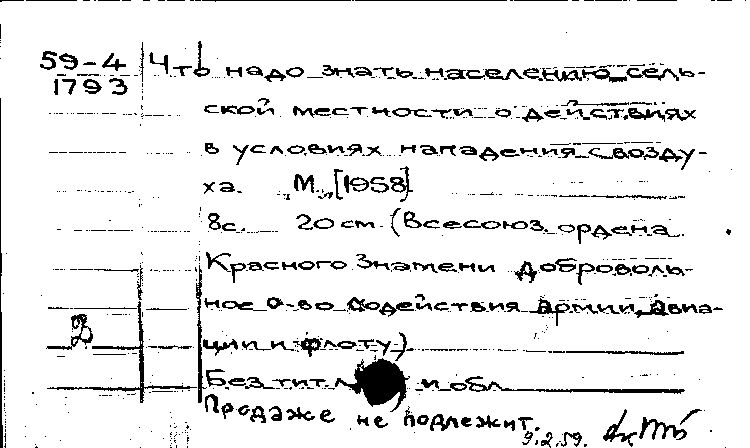 59-4
1793
Что надо знать населению сель-
ской местности о действиях
в условиях нападения с возду-
ха. М., [1958].
8с. 20 см. (Всесоюз. ордена
Красного Знамени доброволь-
ное о-во содействия армии, авиа-
ции и флоту)
В
Без тит. л. и обл.
Продаже не подлежит.
9.2.59.